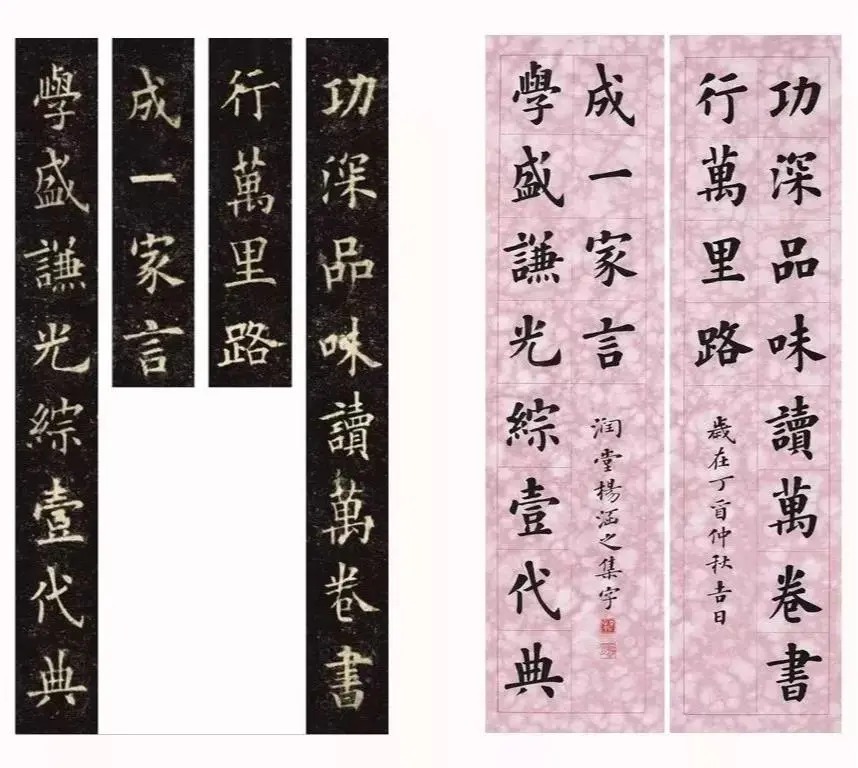 功深品味讀萬卷書
行萬里路
成一家言
學盛謙光綜壹代典
功深品味讀萬卷書
行萬里路
歲在丁酉仲秋吉日
成一家言
润堂楊涵之集字
學盛謙光綜壹代典